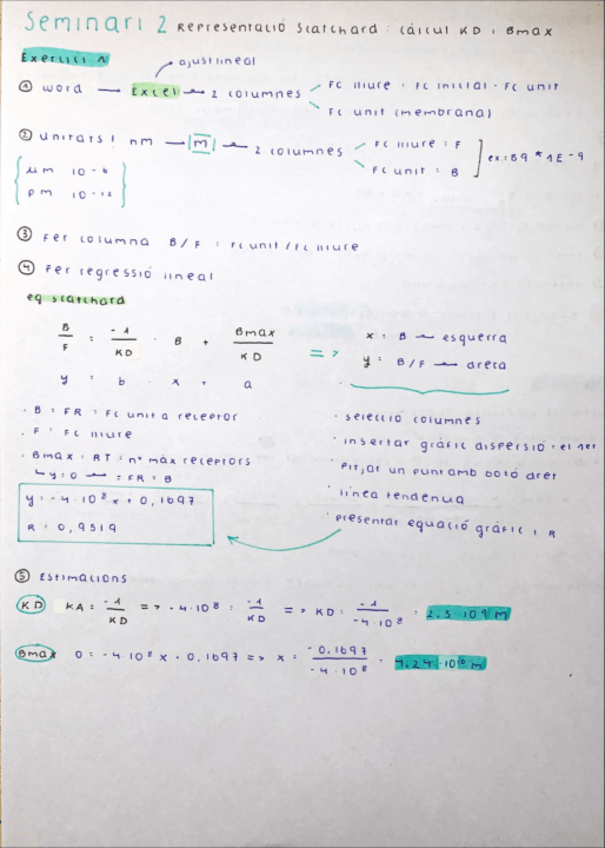 Seminari 2 Representació Scatchard : càlcul KD i Bmax
Exercici 1
ajust lineal
① word → Excel → 2 columnes
Fc lliure : Fc inicial - Fc unit
Fc unit (membrana)
② unitats! nm → |M| → 2 columnes
Fc lliure : F
Fc unit : B
ex: 89 * 1E-9
µm 10-6
pm 10-12
③ Fer columna B/F : Fc unit / Fc lliure
④ Fer regressió lineal
eq scatchard
B/F = -1/KD · B + Bmax/KD => x : B → esquerra
y : B/F → dreta
y = b · x + a
· B = FR = Fc unit a receptor
· F = Fc lliure
· Bmax = RT = nº màx receptors
↳ y=0 → = FR = B
y = -4·10⁸ x + 0,1697
R = 0,9519
· selecció columnes
· insertar gràfic dispersió · el 1er
· pitjar un punt amb botó dret
· línea tendencia
· presentar equació gràfic i R
⑤ Estimacions
KD KA = -1/KD => -4·10⁸ = -1/KD => KD = -1/-4·10⁸ = 2,5·10⁹ M
Bmax 0 = -4·10⁸ x - 0,1697 => x = -0,1697/-4·10⁸ = 4,24·10¹⁰ M